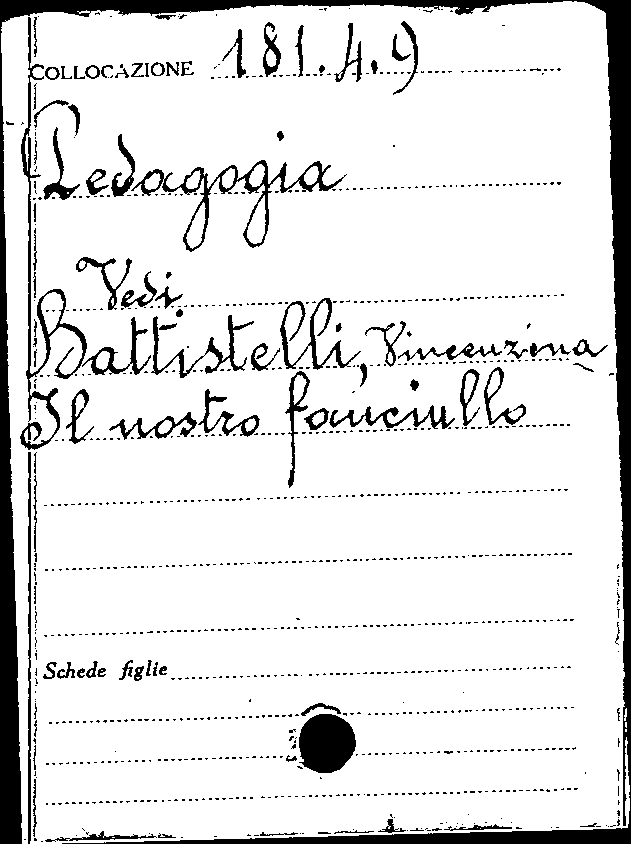 COLLOCAZIONE 181.4.9
Pedagogia
Vedi
Battistelli, Vincenzina
Il nostro fanciullo
Schede figlie